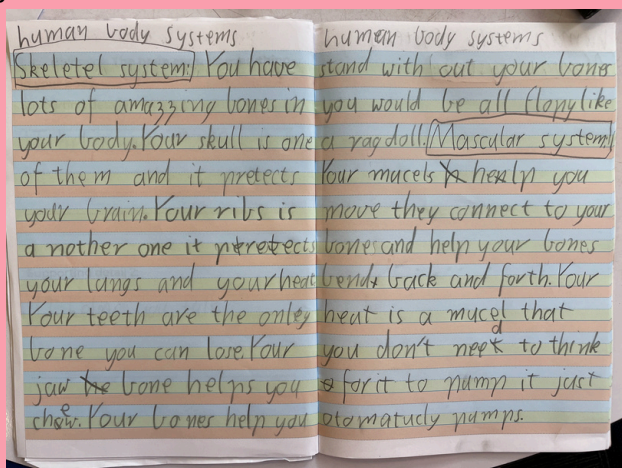 human body systems
Skeletel system! You have
lots of amazzing bones in
your body. Your skull is one
of them and it pretects
your brain. Your ribs is
a nother one it pretects
your lungs and your heat
Your teeth are the onley
bone you can lose. Your
jaw bone helps you
chew. Your bones help you
human body systems
stand with out your bones
you would be all flopy like
a rag doll. Mascular system!
Your mucels help you
move they connect to your
bones and help your bones
bend back and forth. Your
heat is a mucel that
you don't need to think
for it to pump it just
otomatucly pumps.